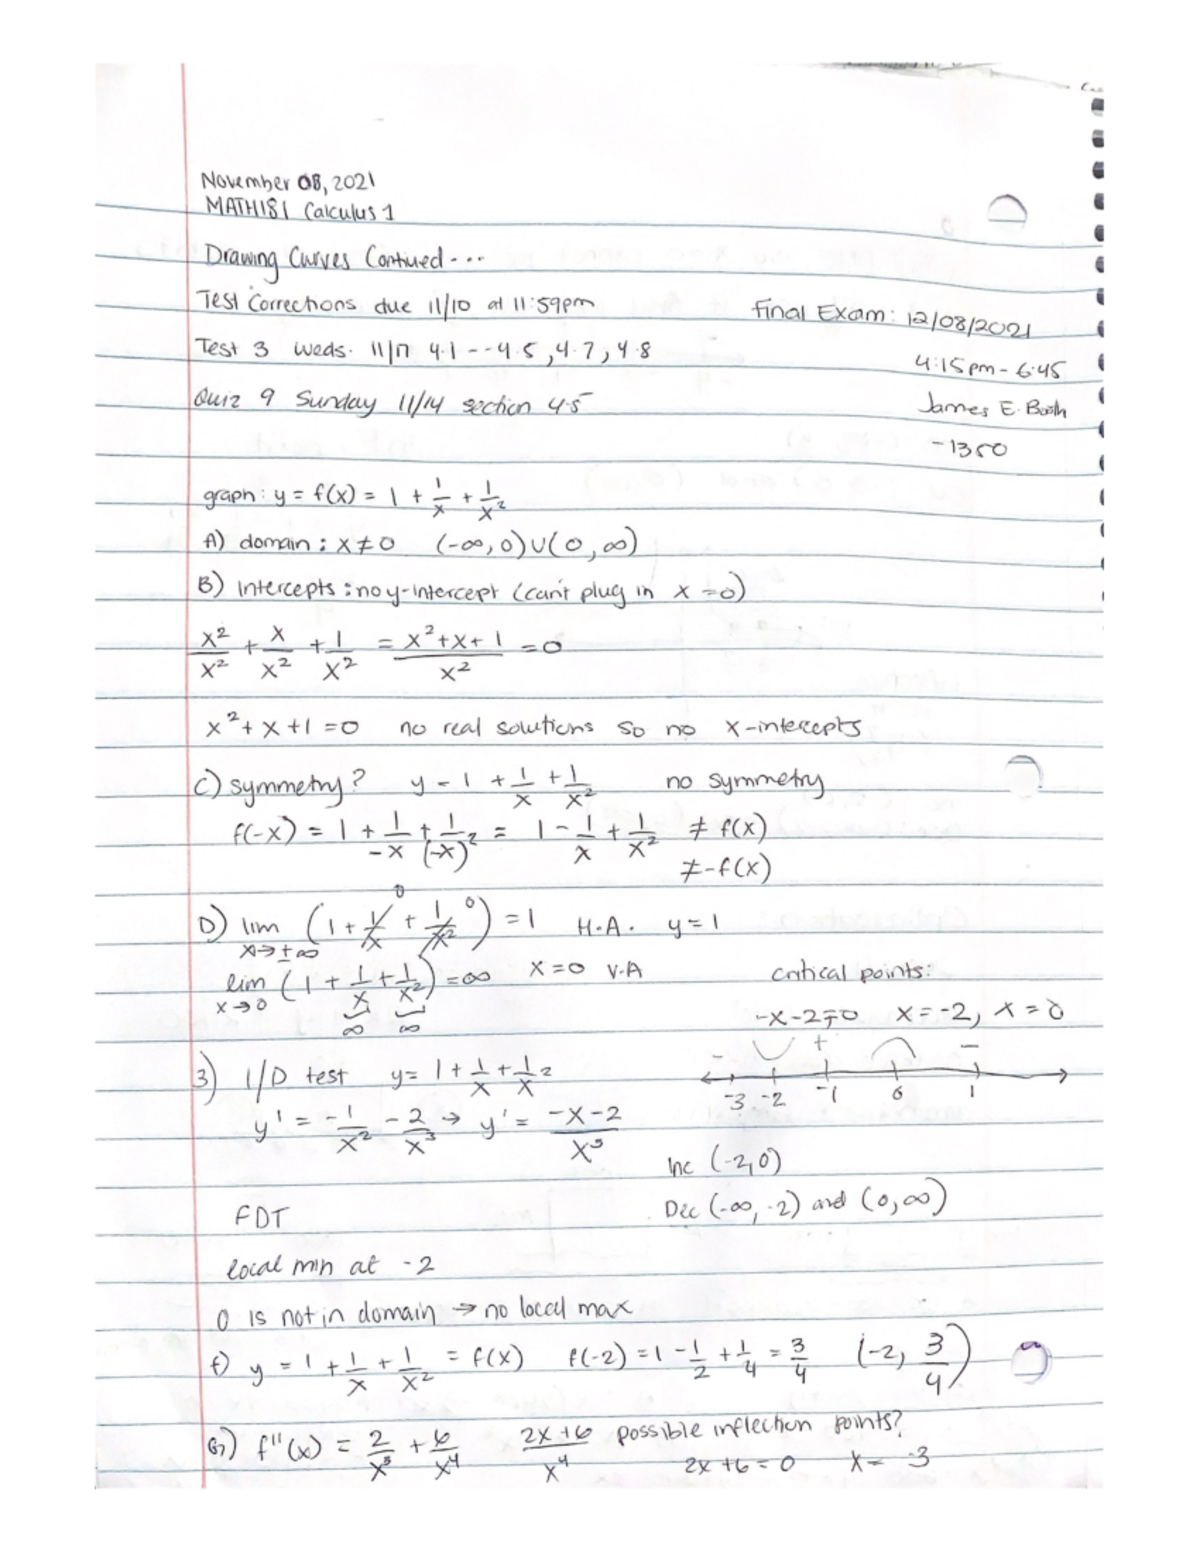 November 08, 2021
MATH181 Calculus 1
Drawing Curves Contiued...
Test Corrections due 11/10 at 11:59pm
Final Exam: 12/08/2021
Test 3 Weds. 11/17 4.1 -- 4.5, 4.7, 4.8
4:15pm - 6:45
Quiz 9 Sunday 11/14 section 4.5
James E. Booth
- 1350
graph: y = f(x) = 1 + 1/x + 1/x²
A) domain: x ≠ 0 (-∞, 0) ∪ (0, ∞)
B) Intercepts: no y-intercept (can't plug in x = 0)
x²/x² + x/x² + 1/x² = (x²+x+1)/x² = 0
x² + x + 1 = 0 no real solutions so no x-intercepts
C) symmetry? y = 1 + 1/x + 1/x² no symmetry
f(-x) = 1 + 1/-x + 1/(-x)² = 1 - 1/x + 1/x² ≠ f(x)
≠ -f(x)
D) lim x→±∞ (1 + 1/x⁰ + 1/x²⁰) = 1 H.A. y = 1
lim x→0 (1 + 1/x + 1/x²) = ∞ x = 0 V.A
∞ ∞
critical points:
-x-2=0 x = -2, x = 0
- + -
-3 -2 -1 0 1
3) I/D test y = 1 + 1/x + 1/x²
y' = -1/x² - 2/x³ → y' = (-x-2)/x³
Inc (-2,0)
Dec (-∞, -2) and (0, ∞)
FDT
local min at -2
0 is not in domain → no local max
f) y = 1 + 1/x + 1/x² = f(x) f(-2) = 1 - 1/2 + 1/4 = 3/4 (-2, 3/4)
G) f''(x) = 2/x³ + 6/x⁴ (2x+6)/x⁴ possible inflection points?
2x + 6 = 0 x = -3